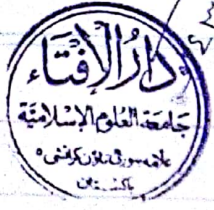 دَارُ الْإِفْتَاء
جَامِعَة العُلُومِ الإِسْلَامِيَّة
علامہ بنوری ٹاؤن کراتشی ٥
باکستان